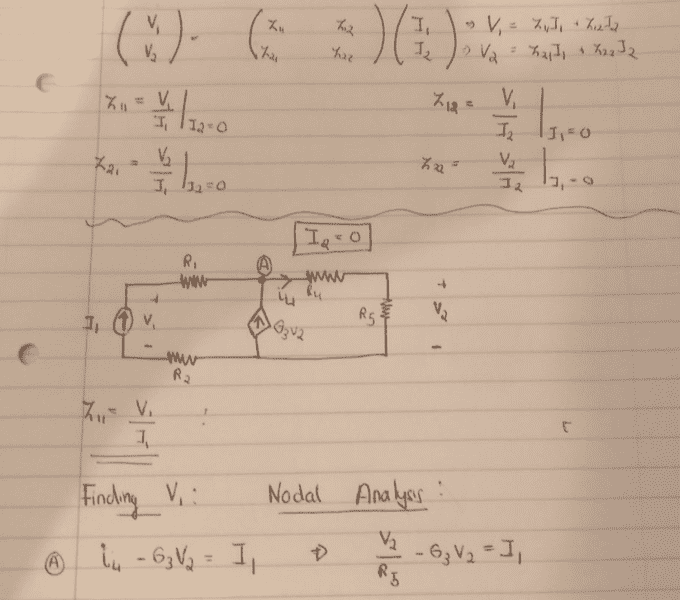 (V₁ V₂) = (Z₁₁ Z₁₂ Z₂₁ Z₂₂) (I₁ I₂) ⇒ V₁ = Z₁₁I₁ + Z₁₂I₂
⇒ V₂ = Z₂₁I₁ + Z₂₂I₂
Z₁₁ = V₁/I₁ | I₂=0
Z₁₂ = V₁/I₂ | I₁=0
Z₂₁ = V₂/I₁ | I₂=0
Z₂₂ = V₂/I₂ | I₁=0
I₂ = 0
R₁
A
i₄
R₄
I₁
+
V₁
-
G₃V₂
R₅
+
V₂
-
R₂
Z₁₁ = V₁/I₁
Finding V₁: Nodal Analysis:
A i₄ - G₃V₂ = I₁ ⇒ V₂/R₅ - G₃V₂ = I₁